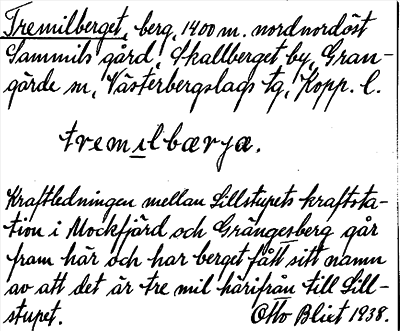 Tremilberget, berg, 1400 m. nordnordöst
Sammils gård, Skallberget by, Gran-
gärde sn, Västerbergslags tg, Kopp. l.
tremilbærja.
Kraftledningen mellan Lillstupets kraftsta-
tion i Mockfjärd och Grängesberg går
fram här och har berget fått sitt namn
av att det är tre mil härifrån till Lill-
stupet. Otto Blixt 1938.